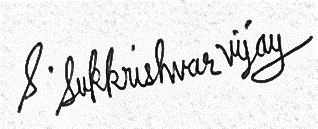 S. Sukkrishvar vijay